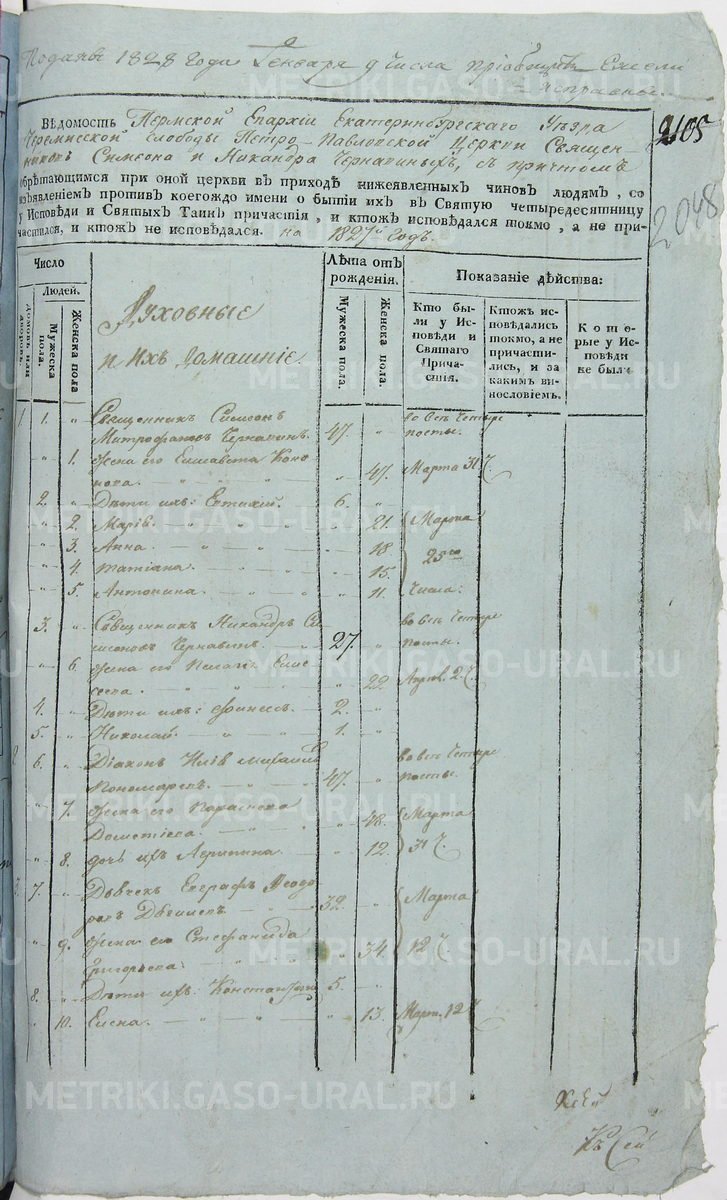 Поданы 1828 года Генваря 9 числа
Вѣдомость Пермской Епархіи Екатеринбургскаго Уѣзда
Черемисской слободы Петро-Павловской Церкви Священ-
никовъ Симеона и Никандра Чернавиныхъ, съ причтомъ
обрѣтающимся при оной церкви въ приходѣ нижеявленныхъ чиновъ людямъ, со
изъявленіемъ противъ коегождо имени о бытіи ихъ въ Святую четыредесятницу
у Исповѣди и Святыхъ Таинъ причастія, и ктожъ исповѣдался токмо, а не при-
частился, и ктожъ не исповѣдался. на 1827й годъ.
2105
2048
Число
Людей.
Домовъ или дворовъ.
Мужеска пола.
Женска пола
Духовные
и ихъ домашніе.
Лѣта отъ рожденія.
Мужеска пола.
Женска пола.
Показаніе дѣйства:
Кто бы-
ли у Ис-
повѣди и
Святаго
Прича-
стія.
Ктожъ ис-
повѣдались
токмо, а не
причасти-
лись, и за
какимъ ви-
нословіемъ.
Кото-
рые у Ис-
повѣди
не были
1 1. „ Священникъ Симеонъ
Митрофановъ Чернавинъ. 47. „ во всѣ четыре посты.
„ 1. жена его Елисавета Коно
нова. „ 47. Марта 31 ч.
2. „ Дѣти ихъ: Евтихій. 6. „
„ 2. Марія. „ 21. Марта
„ 3. Анна. „ 18. 25го
„ 4. Татіана. „ 15.
„ 5. Антонина. „ 11. числа:
3. „ Священникъ Никандръ Си
меоновъ Чернавинъ. 27. „ во всѣ четыре посты.
„ 6. жена его Пелагія Елис
сеева. „ 22. Апрѣл. 2 ч.
4. „ Дѣти ихъ: 2. „
5. „ Николай. 1. „
2 6. „ Діаконъ Илія Михайловъ
Пономаревъ. 47. „ во всѣ четыре посты.
„ 7. жена его Параскева
Дометіева. „ 48. Марта
„ 8. дочь ихъ 12. 31 ч.
3 7. „ Дьячекъ Евграфъ Ѳеодо
ровъ 32. „ Марта
„ 9. жена его Стефанида
Григорьева. „ 34. 12 ч.
8. „ Дѣти ихъ: Константинъ 5. „
„ 10. Елена. „ 13. Март. 12 ч.
Къ сей
METRIKI.GASO-URAL.RU